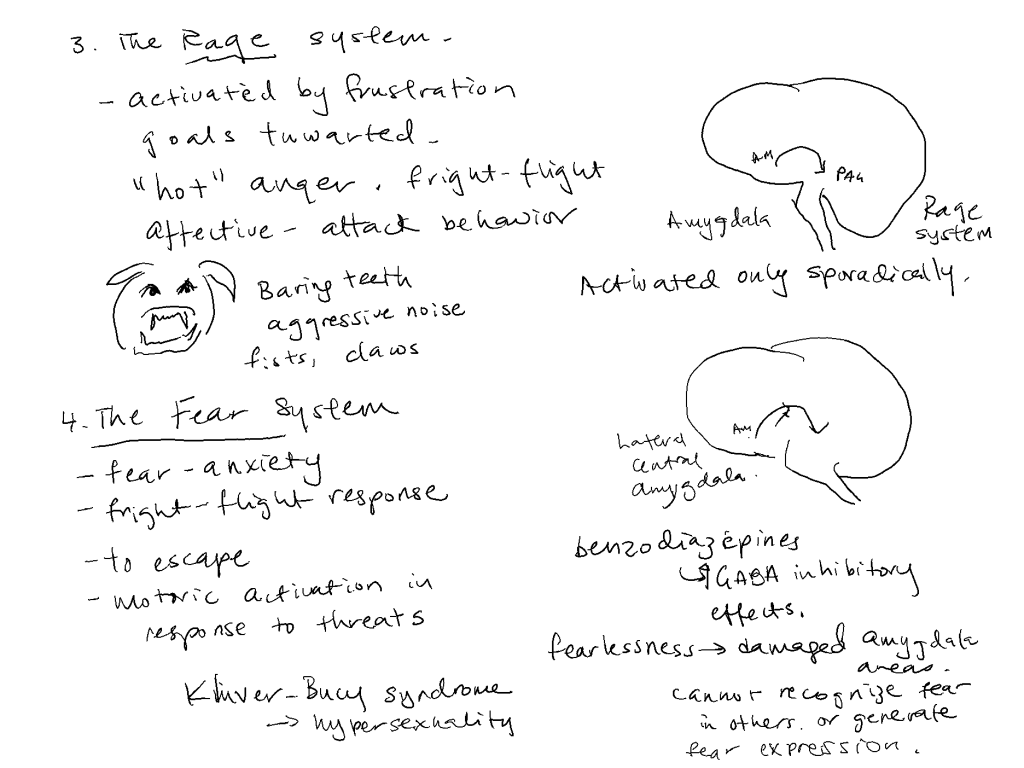 3. The Rage system.
- activated by frustration
goals twwarted.
"hot" anger. fright-flight
affective - attack behavior
Baring teeth
aggressive noise
fists, claws
AM
PAG
Amygdala
Rage
system
Activated only sporadically.
4. The Fear System
- fear - anxiety
- fright-flight response
- to escape
- motoric activation in
response to threats
Kluver-Bucy syndrome
→ hypersexuality
AM.
Lateral
central
amygdala.
benzodiazepines
↳ ↑ GABA inhibitory
effects.
fearlessness → damaged amygdala
areas.
cannot recognize fear
in others. or generate
fear expression.